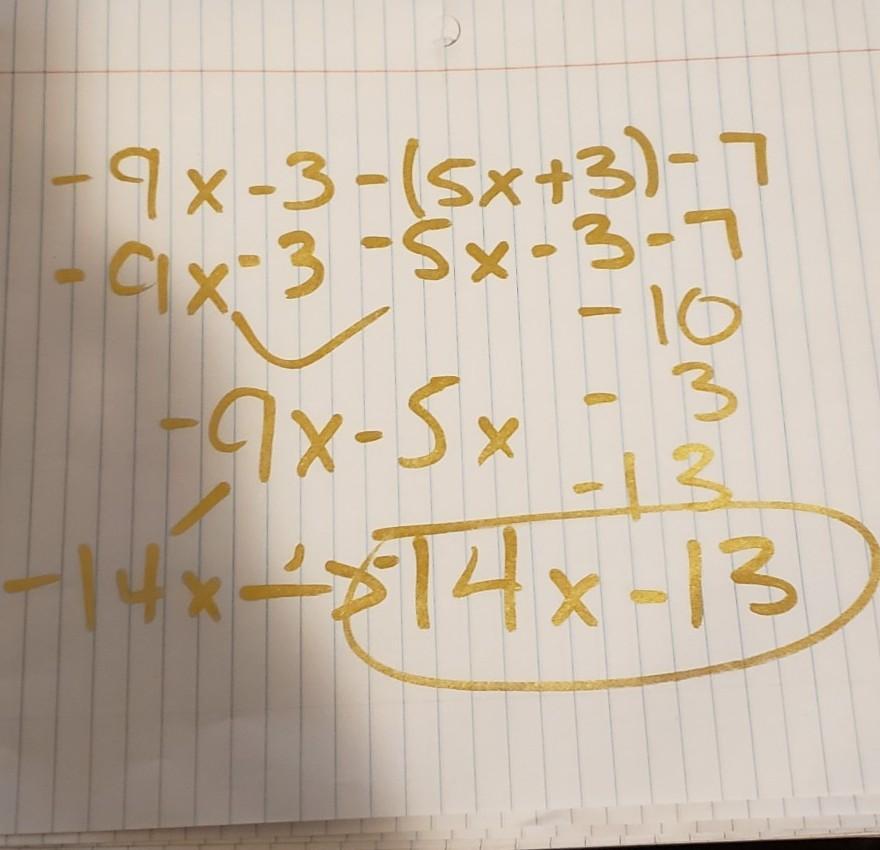 -9x-3-(5x+3)-7
-9x-3-5x-3-7
-10
-9x-5x - 3
-13
-14x → -14x-13